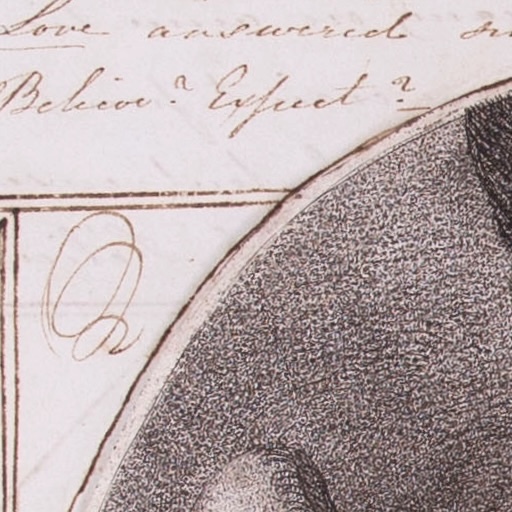 Love answered
Believe? Expect?